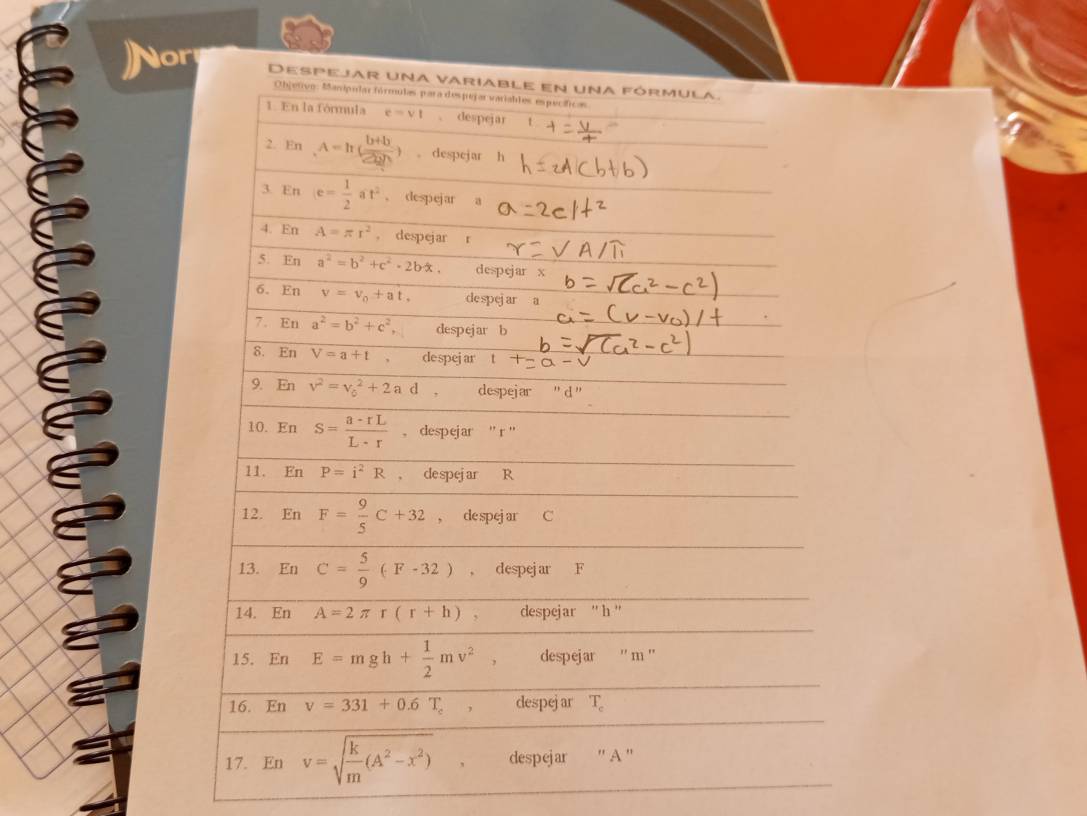 Nor
DESPEJAR UNA VARIABLE EN UNA FÓRMULA.
Objetivo: Manipular fórmulas para despejar variables específicas.
1. En la fórmula e = v t , despejar t t = v/t
2. En A = h ( b+b / ) , despejar h h = 2A(b+b)
3. En e = 1/2 a t² , despejar a a = 2e/t²
4. En A = π r² , despejar r r = √A/π
5. En a² = b² + c² - 2bx , despejar x b = √(a² - c²)
6. En v = v₀ + a t , despejar a a = (v - v₀)/t
7. En a² = b² + c² , despejar b b = √(a² - c²)
8. En V = a + t , despejar t t = a - v
9. En v² = v₀² + 2 a d , despejar "d"
10. En S = a - r L / L - r , despejar "r"
11. En P = i² R , despejar R
12. En F = 9/5 C + 32 , despejar C
13. En C = 5/9 ( F - 32 ) , despejar F
14. En A = 2 π r ( r + h ) , despejar "h"
15. En E = m g h + 1/2 m v² , despejar "m"
16. En v = 331 + 0.6 T꜀ , despejar T꜀
17. En v = √k/m (A² - x²) , despejar "A"